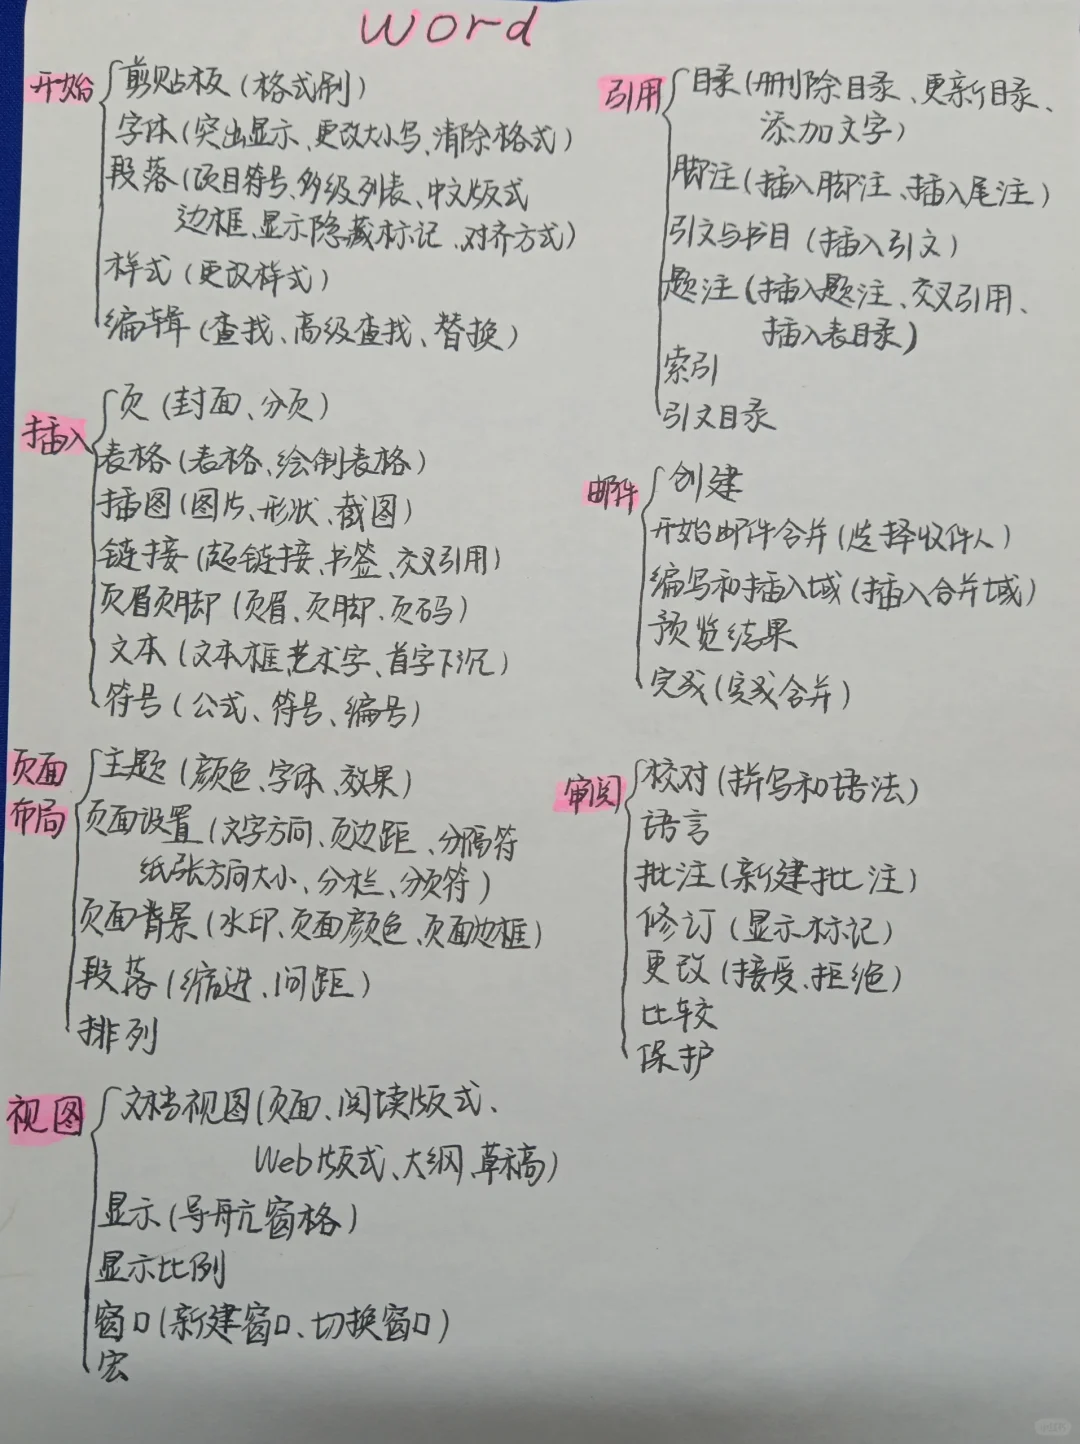 Word
开始
剪贴板（格式刷）
字体（突出显示、更改大小写、清除格式）
段落（项目符号、多级列表、中文版式
边框、显示隐藏标记、对齐方式）
样式（更改样式）
编辑（查找、高级查找、替换）
插入
页（封面、分页）
表格（表格、绘制表格）
插图（图片、形状、截图）
链接（超链接、书签、交叉引用）
页眉页脚（页眉、页脚、页码）
文本（文本框、艺术字、首字下沉）
符号（公式、符号、编号）
页面
布局
主题（颜色、字体、效果）
页面设置（文字方向、页边距、分隔符
纸张方向大小、分栏、分页符）
页面背景（水印、页面颜色、页面边框）
段落（缩进、间距）
排列
视图
文档视图（页面、阅读版式、
Web版式、大纲、草稿）
显示（导航窗格）
显示比例
窗口（新建窗口、切换窗口）
宏
引用
目录（删除目录、更新目录、
添加文字）
脚注（插入脚注、插入尾注）
引文与书目（插入引文）
题注（插入题注、交叉引用、
插入表目录）
索引
引文目录
邮件
创建
开始邮件合并（选择收件人）
编写和插入域（插入合并域）
预览结果
完成（完成合并）
审阅
校对（拼写和语法）
语言
批注（新建批注）
修订（显示标记）
更改（接受、拒绝）
比较
保护